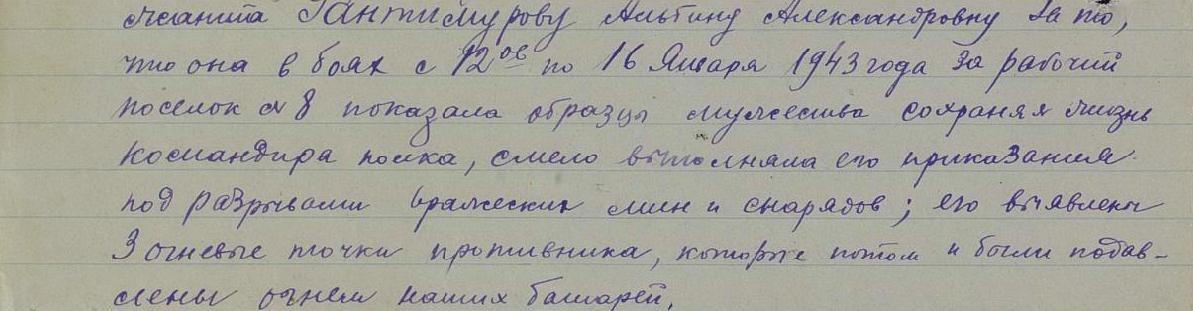 жанта Гантимурову Альбину Александровну за то,
что она в боях с 12ое по 16 Января 1943 года за рабочий
поселок № 8 показала образцы мужества сохраняя жизнь
командира полка, смело выполняла его приказания
под разрывами вражеских мин и снарядов; ею выявлены
3 огневые точки противника, которые потом и были подав-
лены огнем наших батарей.